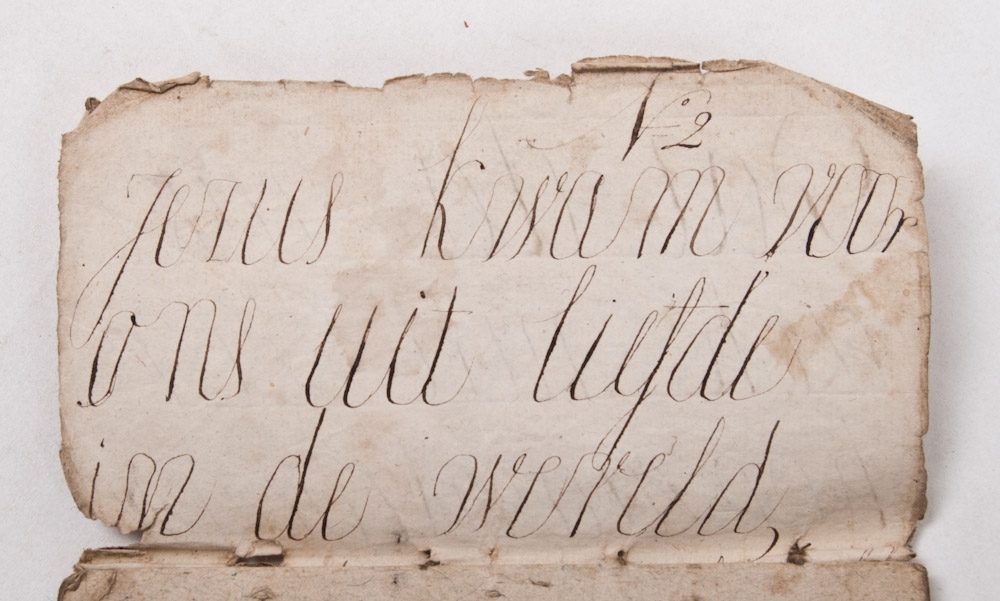 N° 2
Jezus kwam voor
ons uit liefde
in de wereld,